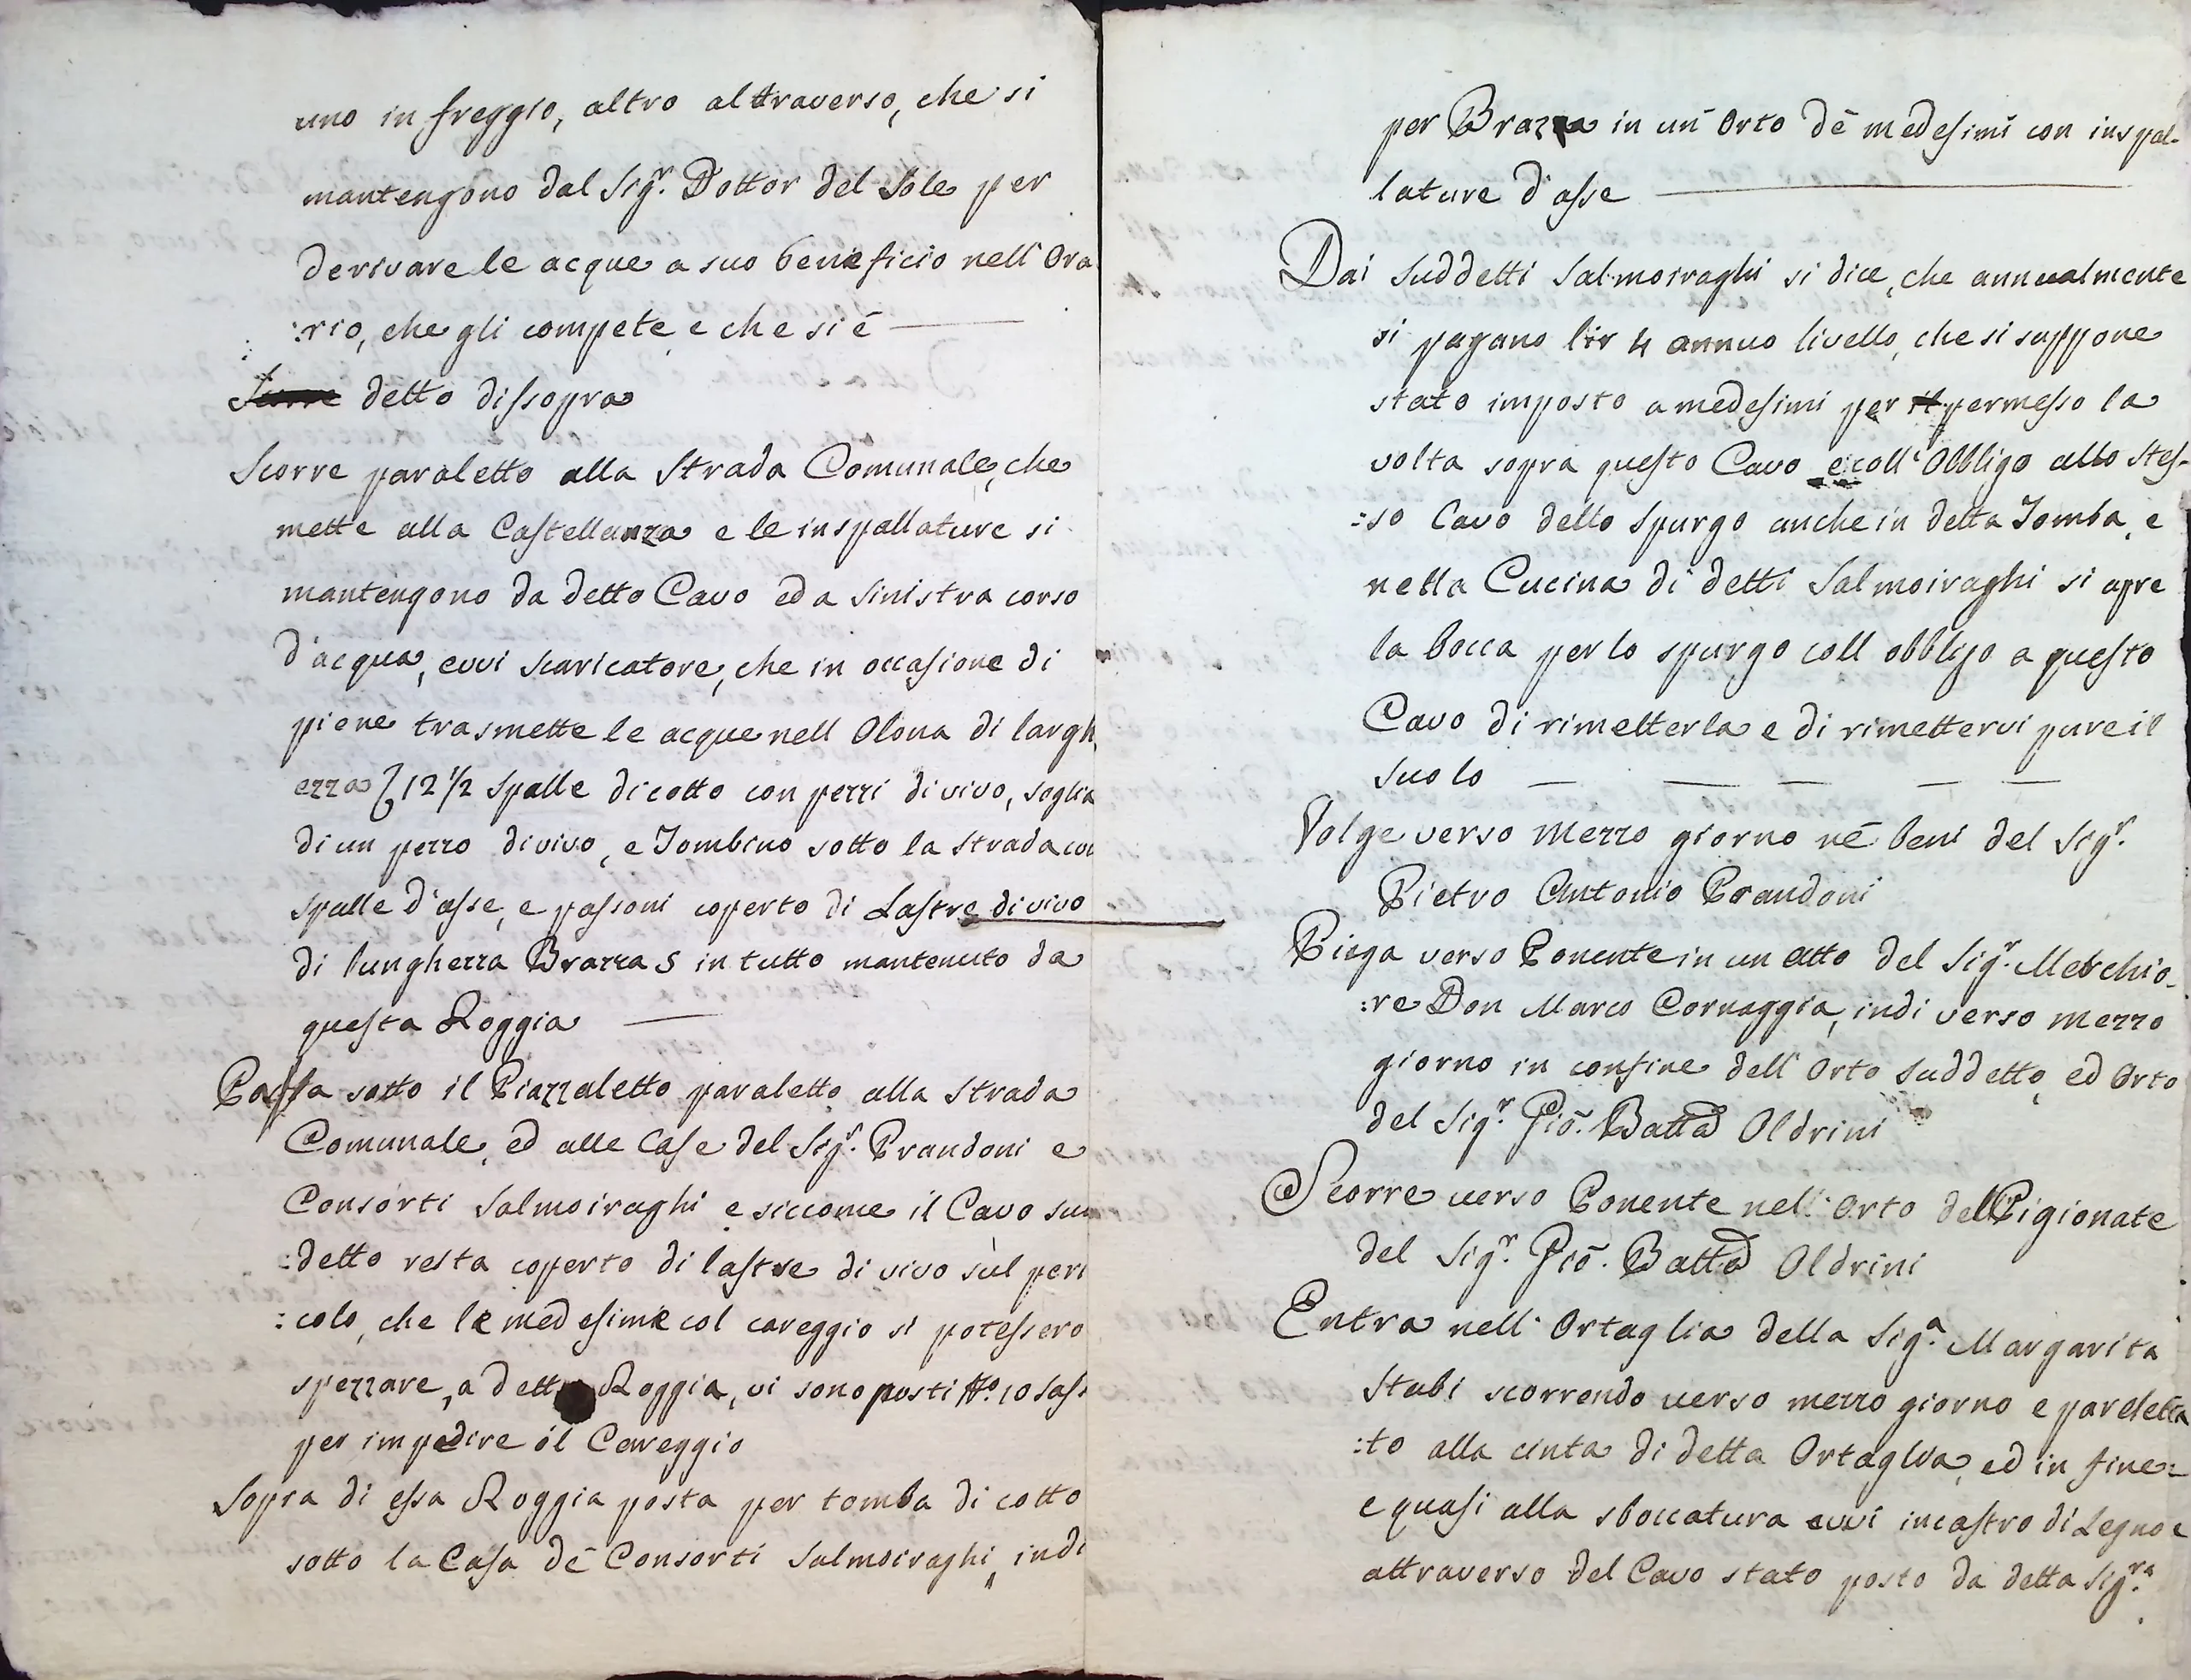 uno in freggio, altro altraverso, che si
mantengono dal Sigr. Dottor del Sole per
derivare le acque a suo beneficio nell' Ora
:rio, che gli compete, e che si é
detto dissopra
Scorre paraletto alla Strada Comunale, che
mette alla Castellanza e le inspallature si
mantengono da detto Cavo ed a sinistra corso
d'acqua, evvi scaricatore, che in occasione di
piene trasmette le acque nell Olona di largh
ezza 12 1/2 spalle di cotto con pezzi di vivo, soglia
di un pezzo di vivo, e Tombino sotto la strada con
spalle d'asse, e passoni coperto di Lastre di vivo
di lunghezza Brazza 5 in tutto mantenuto da
questa Roggia
Passa sotto il Piazzaletto paraletto alla Strada
Comunale, ed alle Case del Sigr. Prandoni e
Consorti Salmoiraghi e siccome il Cavo sud
:detto resta coperto di lastre di vivo sul peri
:colo, che le medesime col careggio si potessero
spezzare, a detta Roggia, vi sono posti No. 10 Sassi
per impedire il Careggio
Sopra di essa Roggia posta per tomba di cotto
sotto la Casa dé Consorti Salmoiraghi, indi
per Brazza in un Orto dé medesimi con inspal-
lature d'asse
Dai Suddetti Salmoiraghi si dice, che annualmente
si pagano lir 4 annuo livello, che si suppone
stato imposto a medesimi per il permesso la
volta sopra questo Cavo e coll' Obbligo allo Stes-
:so Cavo dello spurgo anche in detta Tomba, e
nella Cucina di detti Salmoiraghi si apre
la bocca per lo spurgo coll obbligo a questo
Cavo di rimetterla e di rimettervi pure il
suolo
Volge verso Mezzo giorno né beni del Sigr.
Pietro Antonio Prandoni
Piega verso Ponente in un atto del Sigr. Melchio-
:re Don Marco Cornaggia, indi verso mezzo
giorno in confine dell' Orto suddetto, ed Orto
del Sigr. Gio. Batta Oldrini
Scorre verso Ponente nell' Orto dell Pigionate
del Sigr. Gio. Batta Oldrini
Entra nell' Ortaglia della Siga. Margarita
Stabi scorrendo verso mezzo giorno e paralella
:to alla cinta di detta Ortaglia, ed in fine:
e quasi alla sboccatura evvi incastro di Legno e
attraverso del Cavo stato posto da detta Sigra.